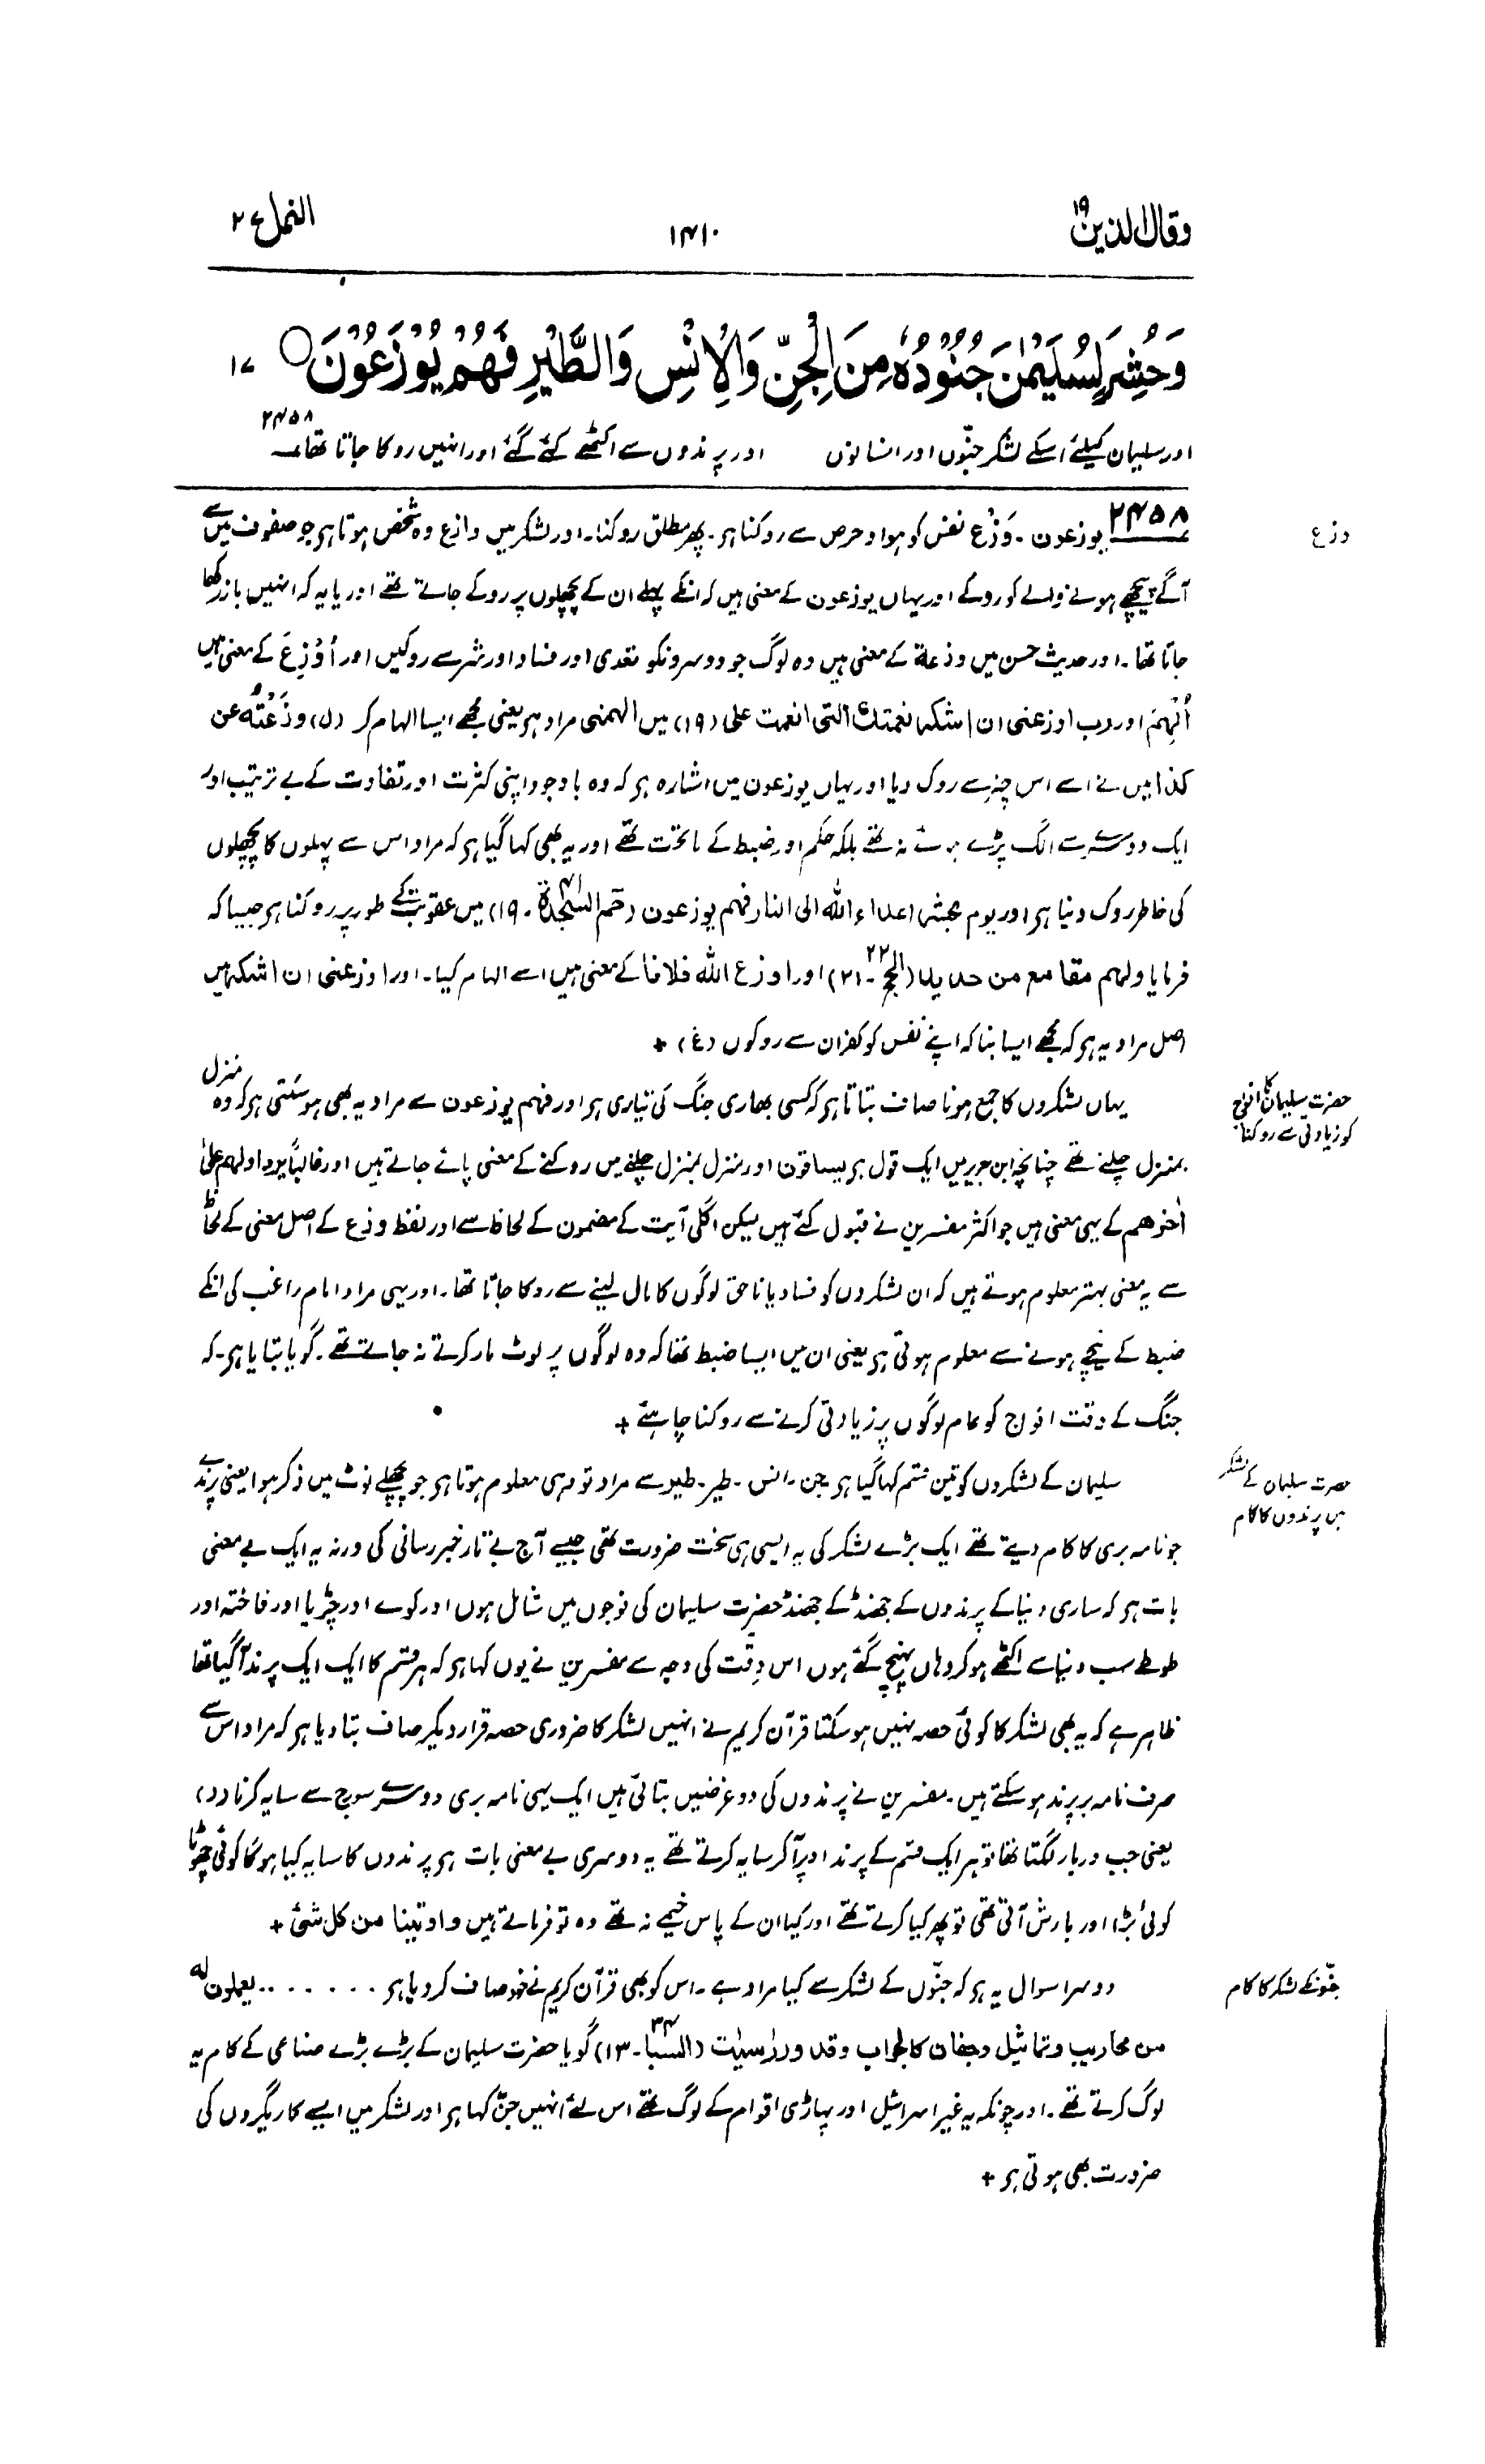 وقال الذین ۱۹
۱۴۱۰
النمل ع ۲
وَحُشِرَ لِسُلَیْمٰنَ جُنُوْدُهٗ مِنَ الْجِنِّ وَالْاِنْسِ وَالطَّیْرِ فَهُمْ یُوْزَعُوْنَ ○ ۱۷
اور سلیمان کیلئے اسکے لشکر جنّوں اور انسانوں اور پرندوں سے اکٹھے کئے گئے اور انہیں روکا جاتا تھا ۲۴۵۸
۲۴۵۸ یوزعون ۔ وَزْع نفس کو ہوا و حرص سے روکنا ہر ۔ پھر مطلق روکنا ۔ اور لشکر میں وازع وہ شخص ہوتا ہر جو صفوف میں سے
وزع
آگے پیچھے ہونے والے کو روکے اور یہاں یوزعون کے معنی ہیں کہ انکے پہلے ان کے پچھلوں پر روکے جاتے تھے اور یا یہ کہ انہیں باز رکھا
جاتا تھا ۔ اور حدیث حسن میں وزعة کے معنی ہیں وہ لوگ جو دوسرونکو تعدی اور فساد اور شر سے روکیں اور أُوْزِعَ کے معنی ہیں
أُلْهِمَ اور رب اوزعنی ان اشکر نعمتك التی انعمت علی (۱۹) میں الهمنی مراد ہر یعنی مجھے ایسا الہام کر (ل) وزَعْتُه عن
کذا میں نے اسے اس چیز سے روک دیا اور یہاں یوزعون میں اشارہ ہر کہ وہ باوجود اپنی کثرت اور تفاوت کے بے ترتیب اور
ایک دوسرے سے الگ پڑے ہوئے نہ تھے بلکہ حکم اور ضبط کے ماتحت تھے اور یہ بھی کہا گیا ہر کہ مراد اس سے پہلوں کا پچھلوں
کی خاطر روک دینا ہر اور یوم یحشر اعداء الله الی النار فهم یوزعون (حٰم السجدة ۴۱ ۔ ۱۹) میں عقوبت کے طور پر روکنا ہر جیسا کہ
فرمایا ولهم مقامع من حدید (الحج ۲۲ ۔ ۲۱) اور اوزع الله فلانا کے معنی ہیں اسے الہام کیا ۔ اور اوزعنی ان اشکر میں
اصل مراد یہ ہر کہ مجھے ایسا بنا کہ اپنے نفس کو کفران سے روکوں (غ) +
یہاں لشکروں کا جمع ہونا صاف بتاتا ہر کہ کسی بھاری جنگ کی تیاری ہر اور فهم یوزعون سے مراد یہ بھی ہو سکتی ہر کہ وہ منزل
حضرت سلیمان کا افواج
کو زیادتی سے روکنا
بمنزل چلتے تھے چنانچہ ابن جریر میں ایک قول ہر یساقون اور منزل بمنزل چلنے میں روکنے کے معنی پائے جاتے ہیں اور غالباً یرد اولهم علیٰ
اٰخرهم کے یہی معنی ہیں جو اکثر مفسرین نے قبول کئے ہیں لیکن اگلی آیت کے مضمون کے لحاظ سے اور لفظ وزع کے اصل معنی کے لحاظ
سے یہ معنی بہتر معلوم ہوتے ہیں کہ ان لشکروں کو فساد یا ناحق لوگوں کا مال لینے سے روکا جاتا تھا ۔ اور یہی مراد امام راغب کی انکے
ضبط کے نیچے ہونے سے معلوم ہوتی ہر یعنی ان میں ایسا ضبط تھا کہ وہ لوگوں پر لوٹ مار کرتے نہ جاتے تھے ۔ گویا بتایا ہر ۔ کہ
جنگ کے وقت افواج کو عام لوگوں پر زیادتی کرنے سے روکنا چاہئے +
سلیمان کے لشکروں کو تین قسم کہا گیا ہر جن ۔ انس ۔ طیر ۔ طیر سے مراد تو وہی معلوم ہوتا ہر جو پچھلے نوٹ میں ذکر ہوا یعنی پرندے
حضرت سلیمان کے لشکر
میں پرندوں کا کام
جو نامہ بری کا کام دیتے تھے ایک بڑے لشکر کی یہ ایسی ہی سخت ضرورت تھی جیسے آج بے تار خبر رسانی کی ورنہ یہ ایک بے معنی
بات ہر کہ ساری دنیا کے پرندوں کے جھنڈ کے جھنڈ حضرت سلیمان کی فوجوں میں شامل ہوں اور کوے اور چڑیا اور فاختہ اور
طوطے سب دنیا سے اکٹھے ہو کر وہاں پہنچ گئے ہوں اس دقت کی وجہ سے مفسرین نے یوں کہا ہر کہ ہر قسم کا ایک ایک پرند آ گیا تھا
ظاہر ہے کہ یہ بھی لشکر کا کوئی حصہ نہیں ہو سکتا قرآن کریم نے انہیں لشکر کا ضروری حصہ قرار دیکر صاف بتا دیا ہر کہ مراد اس سے
صرف نامہ بر پرند ہو سکتے ہیں ۔ مفسرین نے پرندوں کی دو غرضیں بتائی ہیں ایک یہی نامہ بری دوسرے سورج سے سایہ کرنا (د)
یعنی جب دربار لگتا تھا تو ہر ایک قسم کے پرند اوپر آ کر سایہ کرتے تھے یہ دوسری بے معنی بات ہر پرندوں کا سایہ کیا ہو گا کوئی چھوٹا
کوئی بڑا اور بارش آتی تھی تو پھر کیا کرتے تھے اور کیا ان کے پاس خیمے نہ تھے وہ تو فرماتے ہیں واوتینا من کل شئ +
دوسرا سوال یہ ہر کہ جنّوں کے لشکر سے کیا مراد ہے ۔ اس کو بھی قرآن کریم نے خود صاف کر دیا ہر . . . . . . . یعملون له
جنّونکے لشکر کا کام
من محاریب وتماثیل وجفان کالجواب وقدور رٰسیٰت (السبا ۳۴ ۔ ۱۳) گویا حضرت سلیمان کے بڑے بڑے صناعی کے کام یہ
لوگ کرتے تھے ۔ اور چونکہ یہ غیر اسرائیل اور پہاڑی اقوام کے لوگ تھے اس لئے انہیں جنّ کہا ہر اور لشکر میں ایسے کاریگروں کی
ضرورت بھی ہوتی ہر +